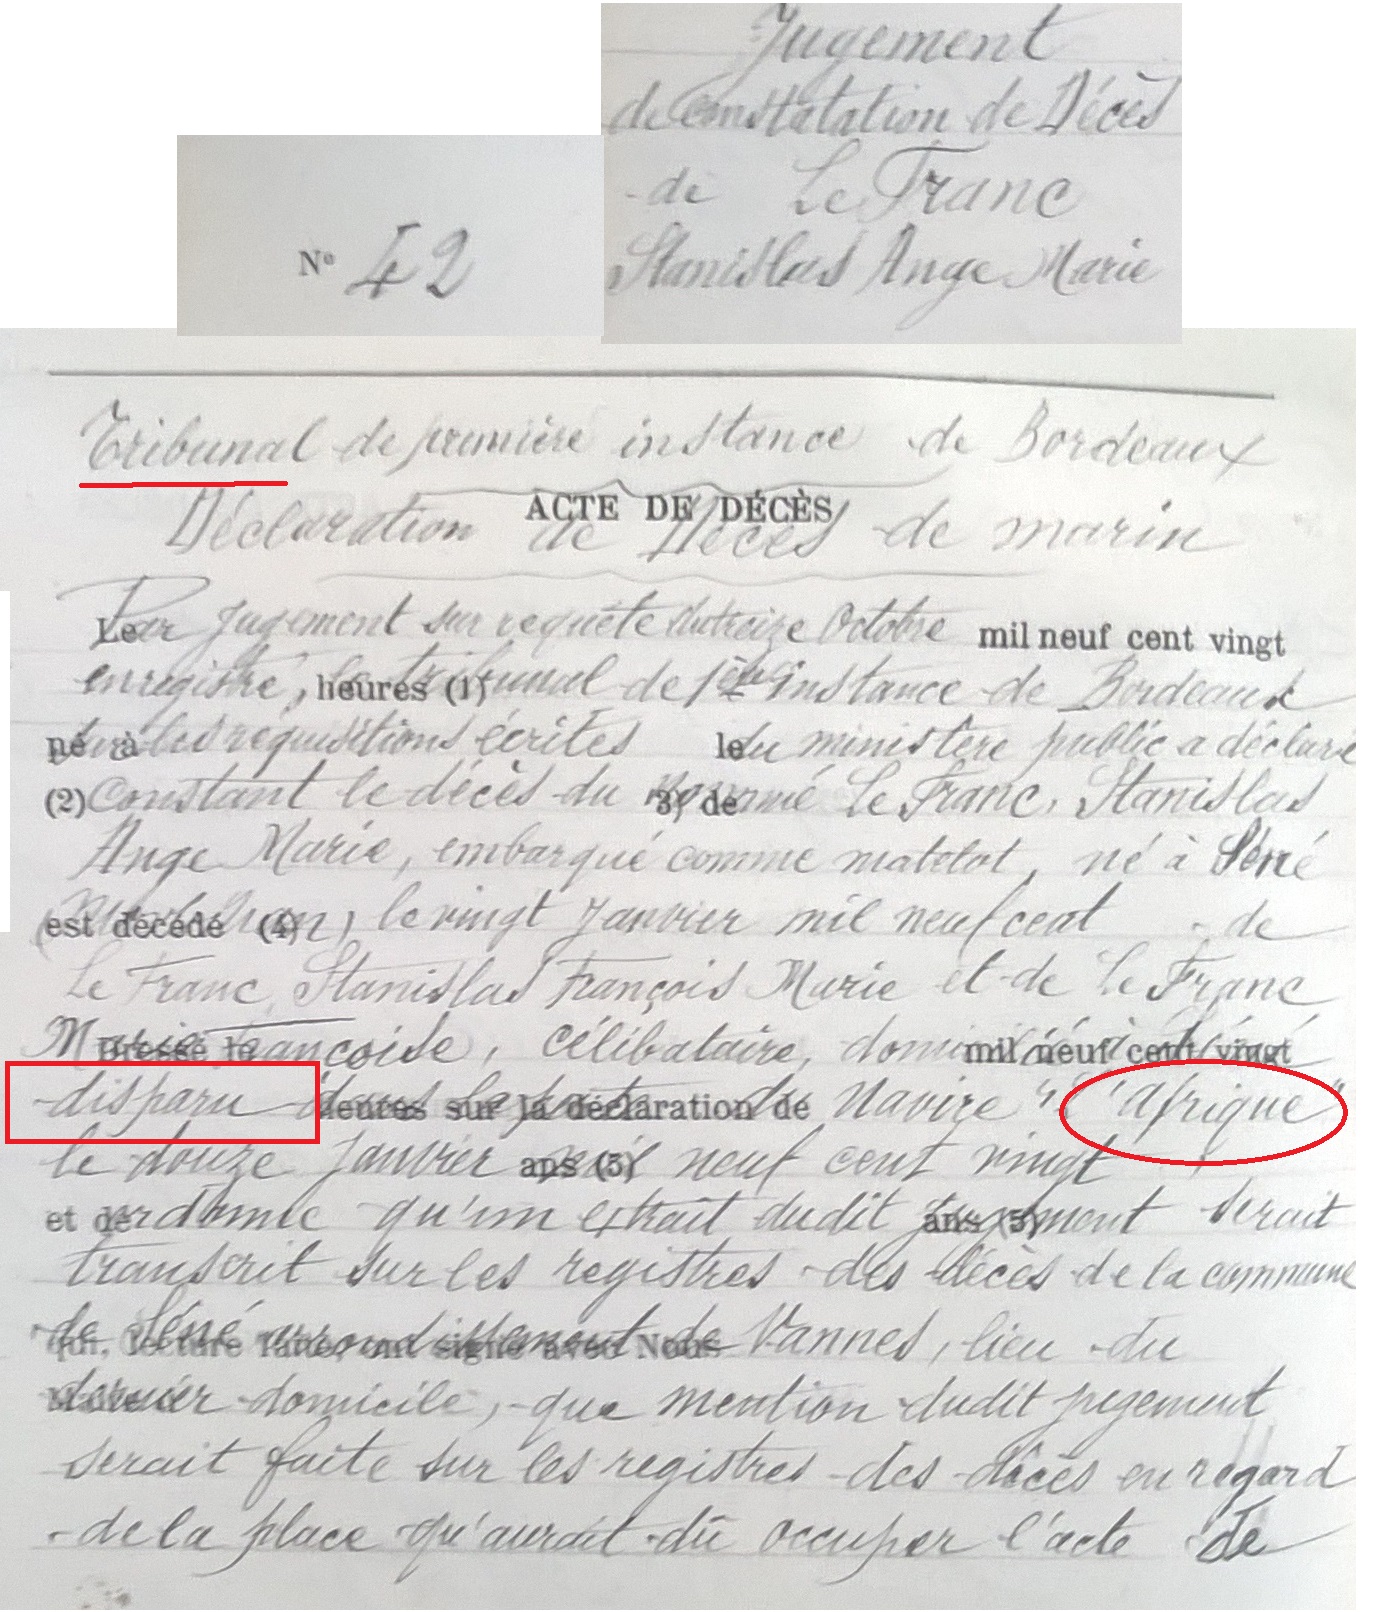 Jugement
de constatation de Décès
de Le Franc
Stanislas Ange Marie
N° 42
Tribunal de première instance de Bordeaux
ACTE DE DÉCÈS
Déclaration de Décès de marin
Le Par jugement sur requête du treize Octobre mil neuf cent vingt
enregistré, le heures (1) tribunal de 1ère instance de Bordeaux
né à sur les réquisitions écrites le du ministère public a déclaré
(2) Constant le décès du nommé 3) de Le Franc, Stanislas
Ange Marie, embarqué comme matelot, né à Séné
est décédé (4) (Morbihan), le vingt Janvier mil neuf cent de
Le Franc Stanislas François Marie et de Le Franc
Marie Françoise, Dressé le célibataire, domicilié à Séné mil neuf cent vingt
disparu dans la perte heures sur la déclaration de du Navire "l'Afrique"
le douze Janvier mil ans (5) neuf cent vingt
et de ordonné qu'un extrait dudit jugement ans (5) serait
transcrit sur les registres des décès de la commune
de Séné arrondissement de Vannes, lieu du
qui, lecture faite, ont signé avec Nous
dernier domicile, que mention dudit jugement
serait faite sur les registres des décès en regard
de la place qu'aurait dû occuper l'acte de